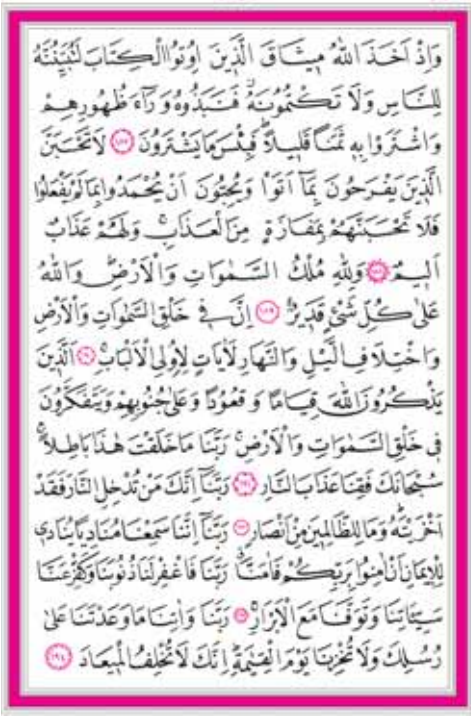 وَاِذْ اَخَذَ اللّٰهُ مٖيثَاقَ الَّذٖينَ اُوتُوا الْكِتَابَ لَتُبَيِّنُنَّهُ
لِلنَّاسِ وَلَا تَكْتُمُونَهُۘ فَنَبَذُوهُ وَرَٓاءَ ظُهُورِهِمْ
وَاشْتَرَوْا بِهٖ ثَمَنًا قَلٖيلًاۜ فَبِئْسَ مَا يَشْتَرُونَ ﴿١٨٧﴾ لَا تَحْسَبَنَّ
الَّذٖينَ يَفْرَحُونَ بِمَٓا اَتَوْا وَيُحِبُّونَ اَنْ يُحْمَدُوا بِمَا لَمْ يَفْعَلُوا
فَلَا تَحْسَبَنَّهُمْ بِمَفَازَةٍ مِنَ الْعَذَابِۚ وَلَهُمْ عَذَابٌ
اَلٖيمٌ ﴿١٨٨﴾ وَلِلّٰهِ مُلْكُ السَّمٰوَاتِ وَالْاَرْضِؕ وَاللّٰهُ
عَلٰى كُلِّ شَیْءٍ قَدٖيرٌ ﴿١٨٩﴾ اِنَّ فٖی خَلْقِ السَّمٰوَاتِ وَالْاَرْضِ
وَاخْتِلَافِ الَّيْلِ وَالنَّهَارِ لَاٰيَاتٍ لِاُولِی الْاَلْبَابِۚ ﴿١٩٠﴾ اَلَّذٖينَ
يَذْكُرُونَ اللّٰهَ قِيَامًا وَقُعُودًا وَعَلٰى جُنُوبِهِمْ وَيَتَفَكَّرُونَ
فٖی خَلْقِ السَّمٰوَاتِ وَالْاَرْضِۚ رَبَّنَا مَا خَلَقْتَ هٰذَا بَاطِلًاۚ
سُبْحَانَكَ فَقِنَا عَذَابَ النَّارِ ﴿١٩١﴾ رَبَّنَٓا اِنَّكَ مَنْ تُدْخِلِ النَّارَ فَقَدْ
اَخْزَيْتَهُؕ وَمَا لِلظَّالِمٖينَ مِنْ اَنْصَارٍ ﴿١٩٢﴾ رَبَّنَٓا اِنَّنَا سَمِعْنَا مُنَادِيًا يُنَادٖی
لِلْاٖيمَانِ اَنْ اٰمِنُوا بِرَبِّكُمْ فَاٰمَنَّاۗ رَبَّنَا فَاغْفِرْ لَنَا ذُنُوبَنَا وَكَفِّرْ عَنَّا
سَيِّـَٔاتِنَا وَتَوَفَّنَا مَعَ الْاَبْرَارِۚ ﴿١٩٣﴾ رَبَّنَا وَاٰتِنَا مَا وَعَدْتَنَا عَلٰى
رُسُلِكَ وَلَا تُخْزِنَا يَوْمَ الْقِيٰمَةِؕ اِنَّكَ لَا تُخْلِفُ الْمٖيعَادَ ﴿١٩٤﴾